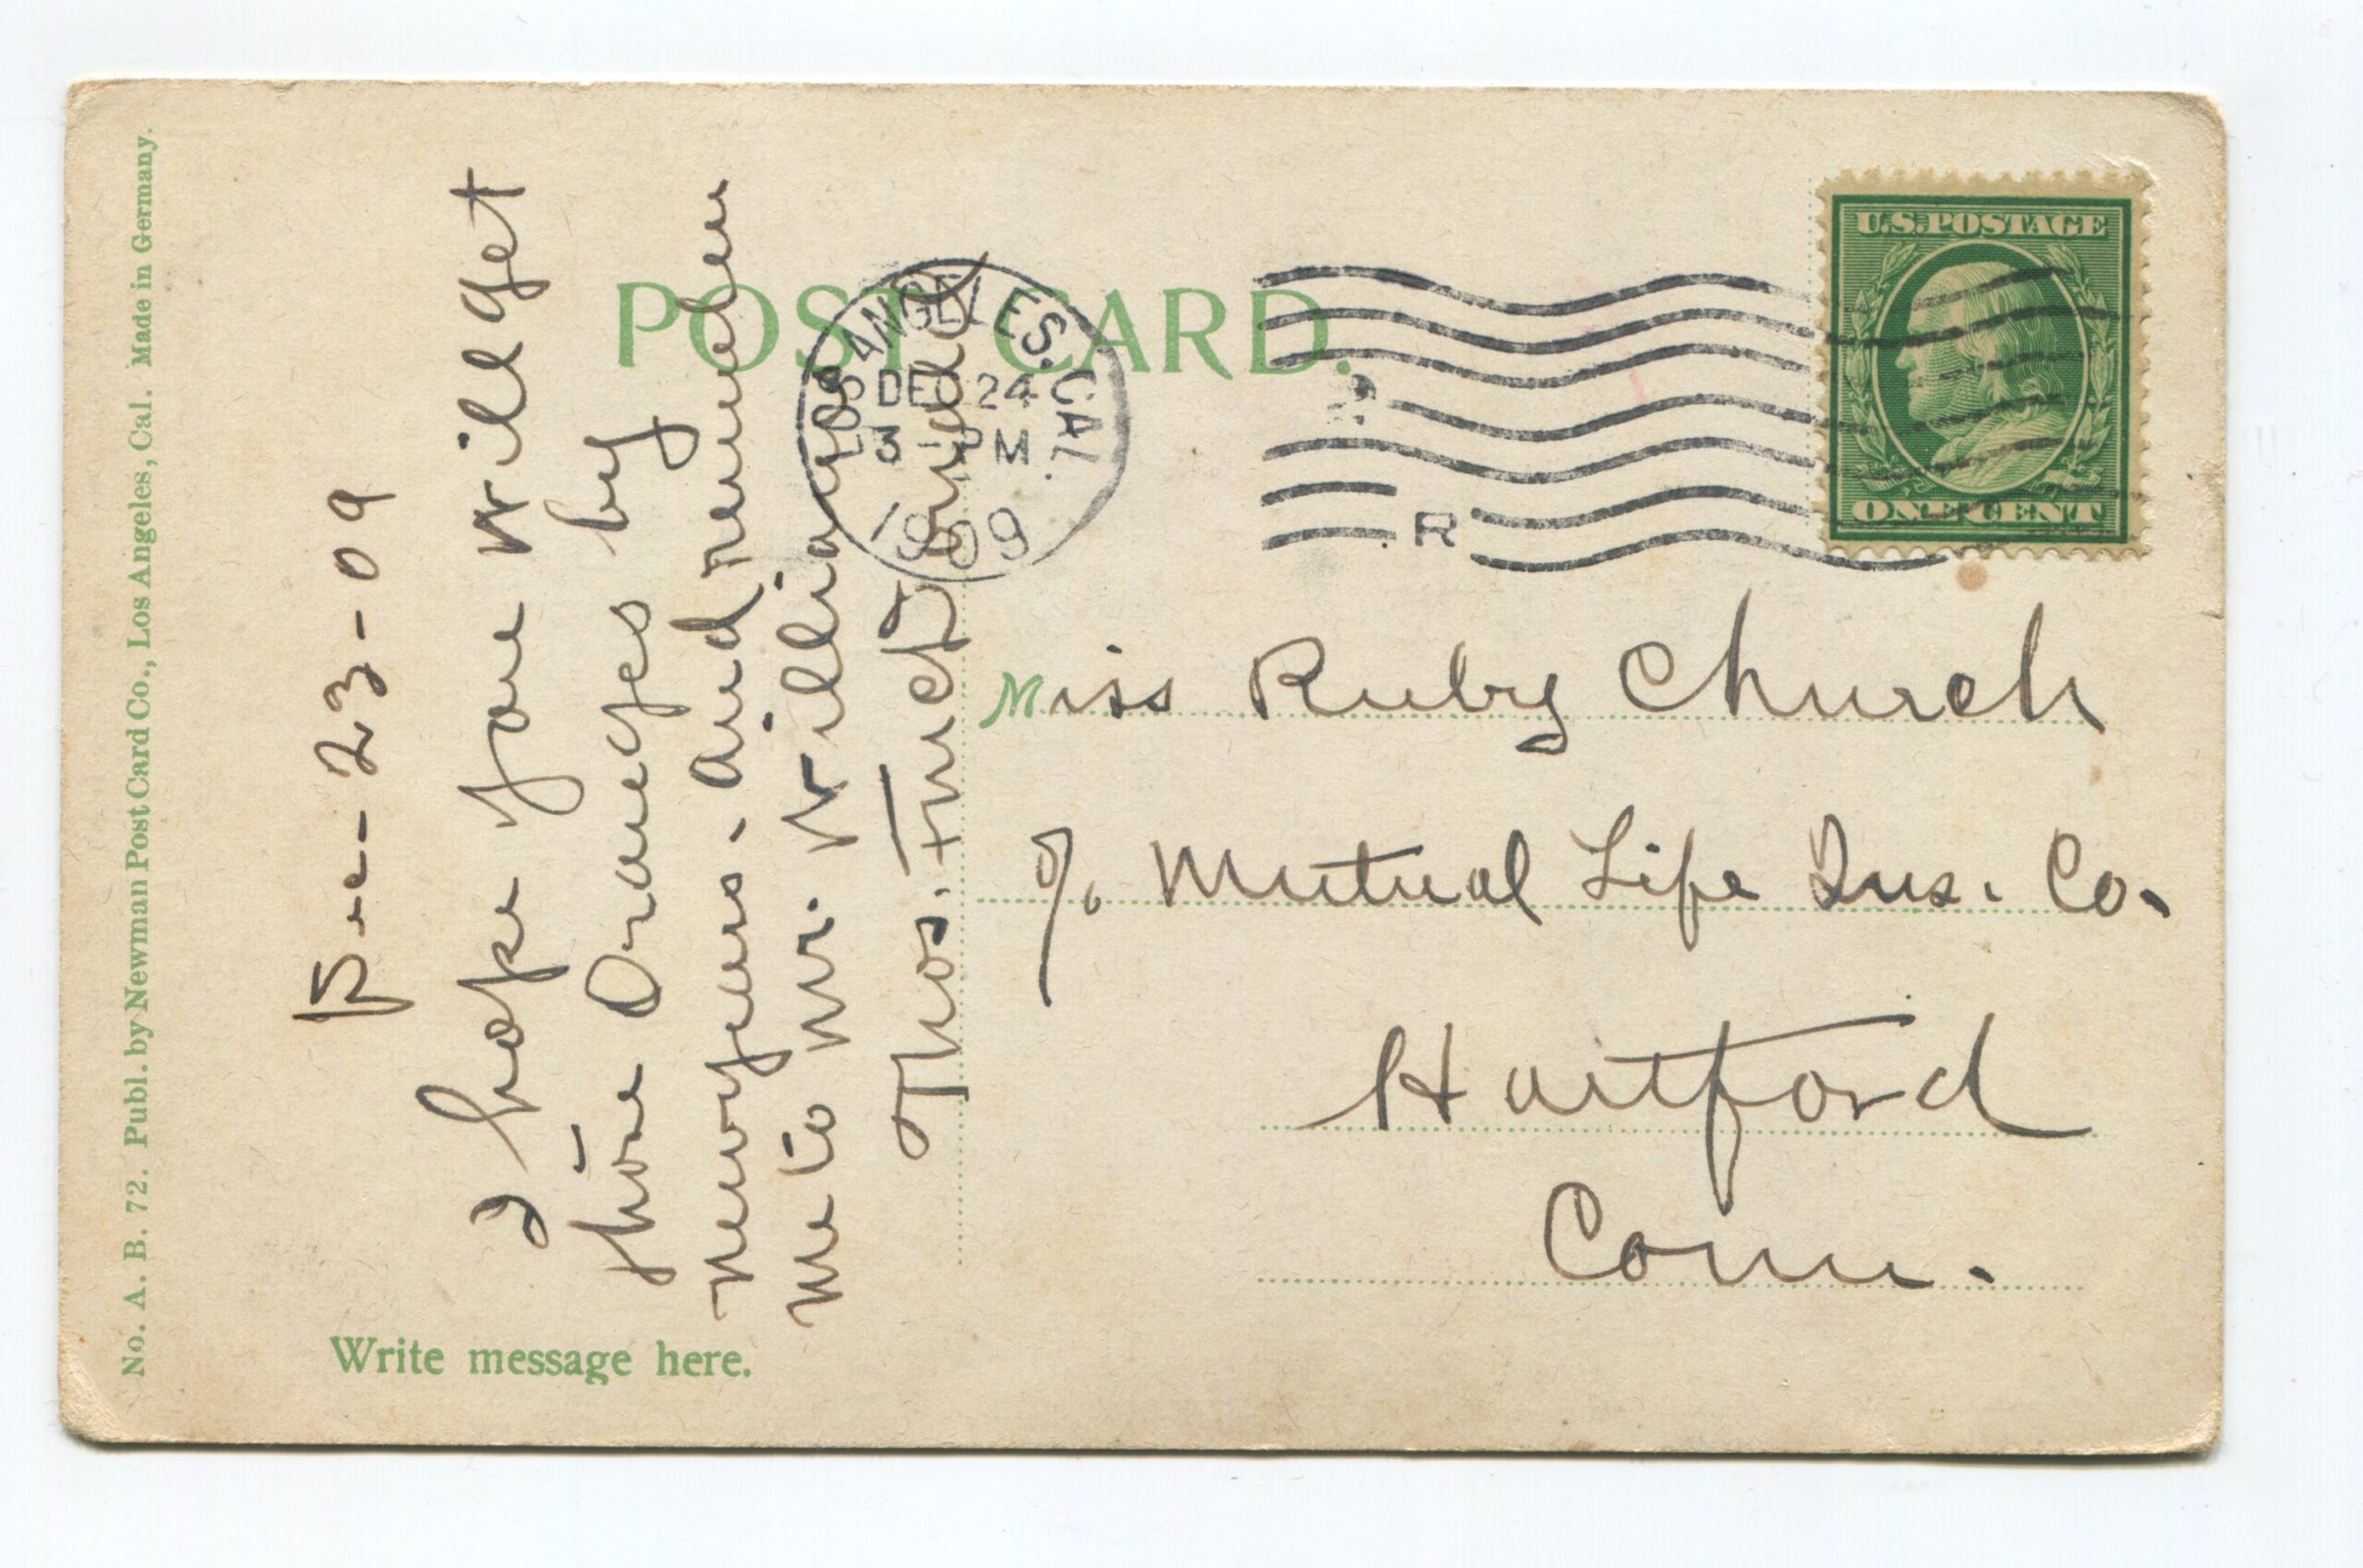 No. A. B. 72. Publ. by Newman Post Card Co., Los Angeles, Cal. Made in Germany.
POST CARD.
Dec- 23-09
I hope you will get
thoe Oranges by
newyears. and remember
me to mr. Williams
Thos.
Write message here.
LOS ANGELES. CAL.
DEC 24
3 M
1909
R
U.S. POSTAGE
ONE CENT
Miss Ruby Church
% Mutual Life Ins. Co.
Hartford
Conn.